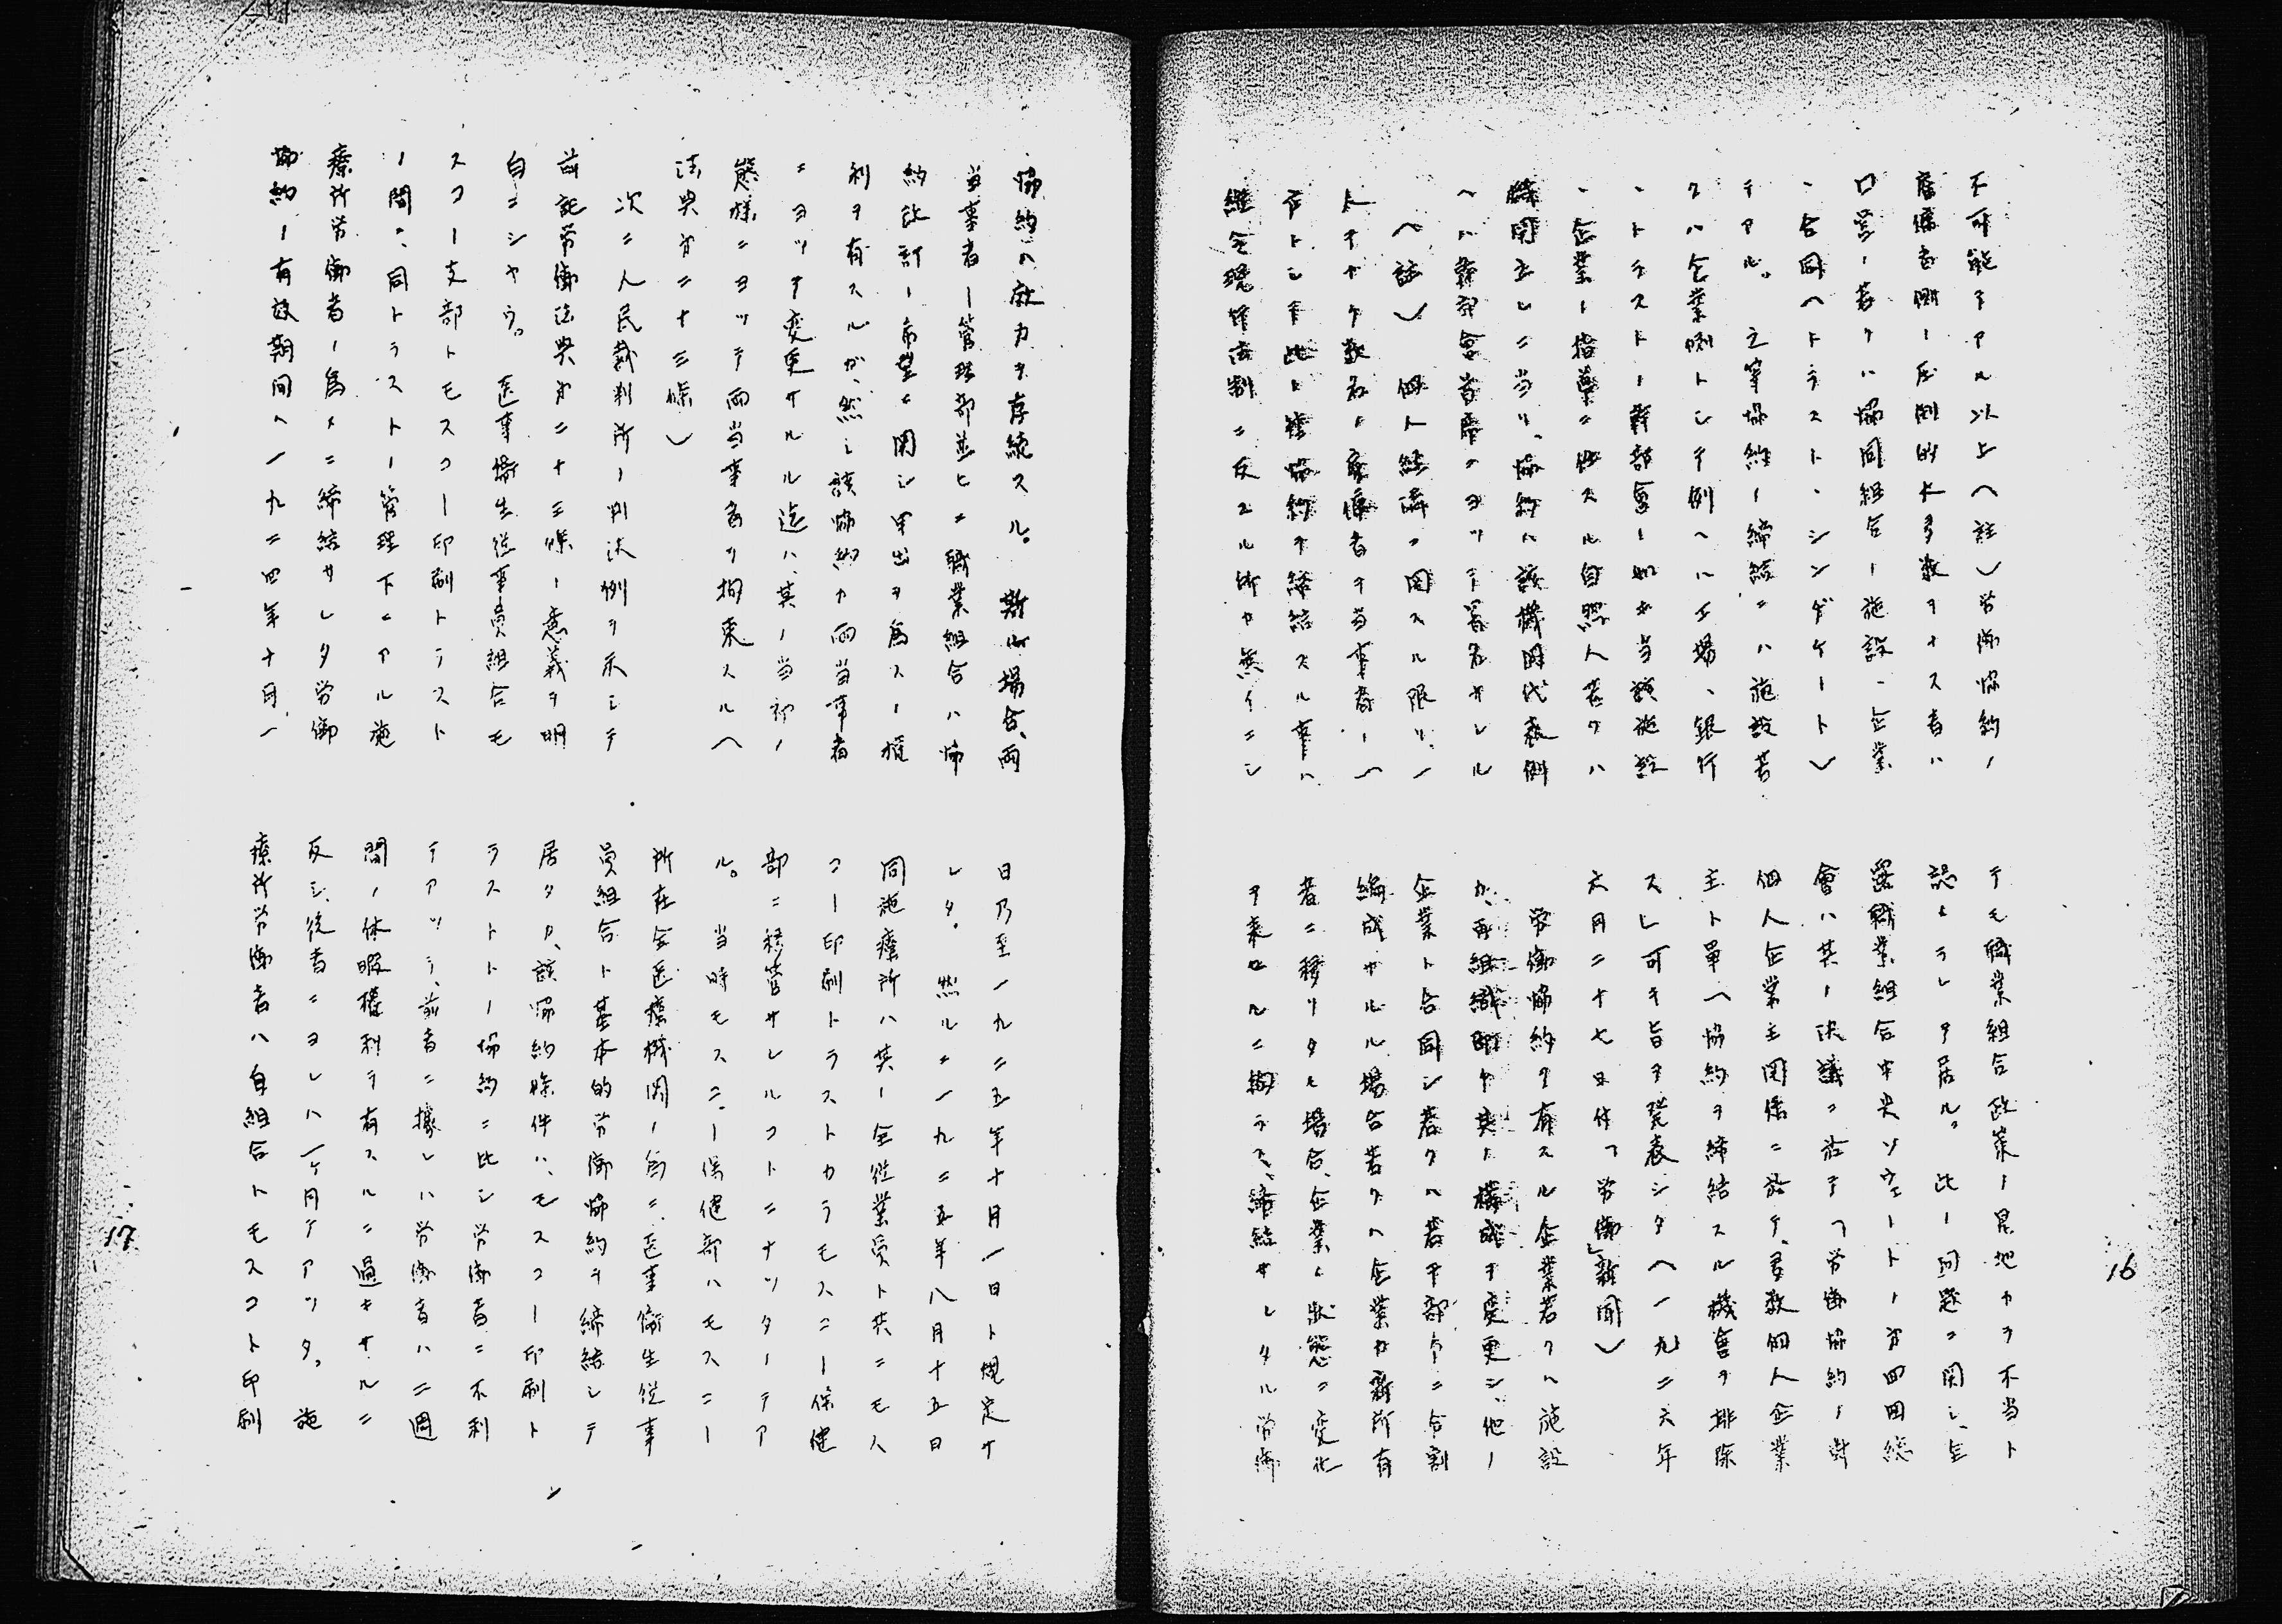 不可能テアル以上(註)労働協約ノ
雇傭者側ノ圧倒的大多数ヲナス者ハ
口営ノ若クハ協同組合ノ施設、企業
、合同(トラスト、シンヂケート)
テアル。之等協約ノ締結ニハ施設若
クハ企業側トシテ例ヘハ工場、銀行
、トラストノ幹部會ノ如キ当該施設
、企業ノ指導ニ任スル自然人若クハ
機関立レニ当リ、協約ハ該機関代表例
ヘハ幹部會首席ニヨツテ署名サレル
(註) 個人経済ニ関スル限リ、一
人テナク数名ノ雇傭者ヲ当事者ノ一
方トシテ此ト 協約ヲ締結スル事ハ
縦令現行法制ニ反スル所カ無イニシ
テモ職業組合政策ノ見地カラ不当ト
認メラレテ居ル。此ノ問題ニ関シ、全
露職業組合中央ソヴェートノ第四回総
會ハ其ノ決議ニ於テ「労働協約ノ対
個人企業主関係ニ於テ、多数個人企業
主ト単一協約ヲ締結スル機會ヲ排除
スレ可キ旨ヲ発表シタ(一九二六年
六月二十七日付「労働」新聞)
労働協約ヲ有スル企業若クハ施設
カ、再組織即チ其ノ構成ヲ変更シ、他ノ
企業ト合同シ若クハ若干部分ニ分割
編成サルル場合若クハ企業カ新所有
者ニ移リタル場合、企業ノ状態ニ変化
ヲ来セルニ拘ラス、締結サレタル労働
16
協約ハ效力ヲ存続スル。斯ル場合、両
当事者ノ管理部並ヒニ職業組合ハ協
約改訂ノ希望ニ関シ申出ヲ為スノ権
利ヲ有スルガ、然シ該協約カ両当事者
ニヨツテ変更サルル迄ハ、其ノ当初ノ
態様ニヨツテ両当事者ヲ拘束スル(
法典第二十三條)
次ニ人民裁判所ノ判決例ヲ示シテ
前記労働法典第二十三條ノ意義ヲ明
白ニシヤウ。医事衛生従事員組合モ
スコー支部トモスコー印刷トラスト
ノ間ニ、同トラストノ管理下ニアル施
療所労働者ノ為メニ締結サレタ労働
協約ノ有效期間ハ一九二四年十月一
日乃至一九二五年十月一日ト規定サ
レタ。然ルニ一九二五年八月十五日
同施療所ハ其ノ全従業員ト共ニモス
コー印刷トラストカラモスニー保健
部ニ移管サレルコトニナツタノテア
ル。当時モスニー保健部ハモスニー
所在全医療機関ノ為ニ、医事衛生従事
員組合ト基本的労働協約ヲ締結シテ
居タカ、該協約條件ハ、モスコー印刷ト
ラストノ協約ニ比シ労働者ニ不利
テアツテ、前者ニ據レハ労働者ハ二週
間ノ休暇権利ヲ有スルニ過キサルニ
反シ、後者ニヨレハ一ヶ月テアツタ。施
療所労働者ハ自組合トモスコト印刷
17